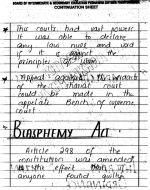 BOARD OF INTERMEDIATE & SECONDARY EDUCATION
CONTINUATION SHEET
* This courts had vast power
it was able to declare
any law null and void
if it is against the
principles of Islam
* Appeal against the
of the shariat court
could be made in the
appellate Bench of supreme
court
BLASPHEMY ACT
Article 298 of the
constitution was amended
the effect that
anyone found guilty